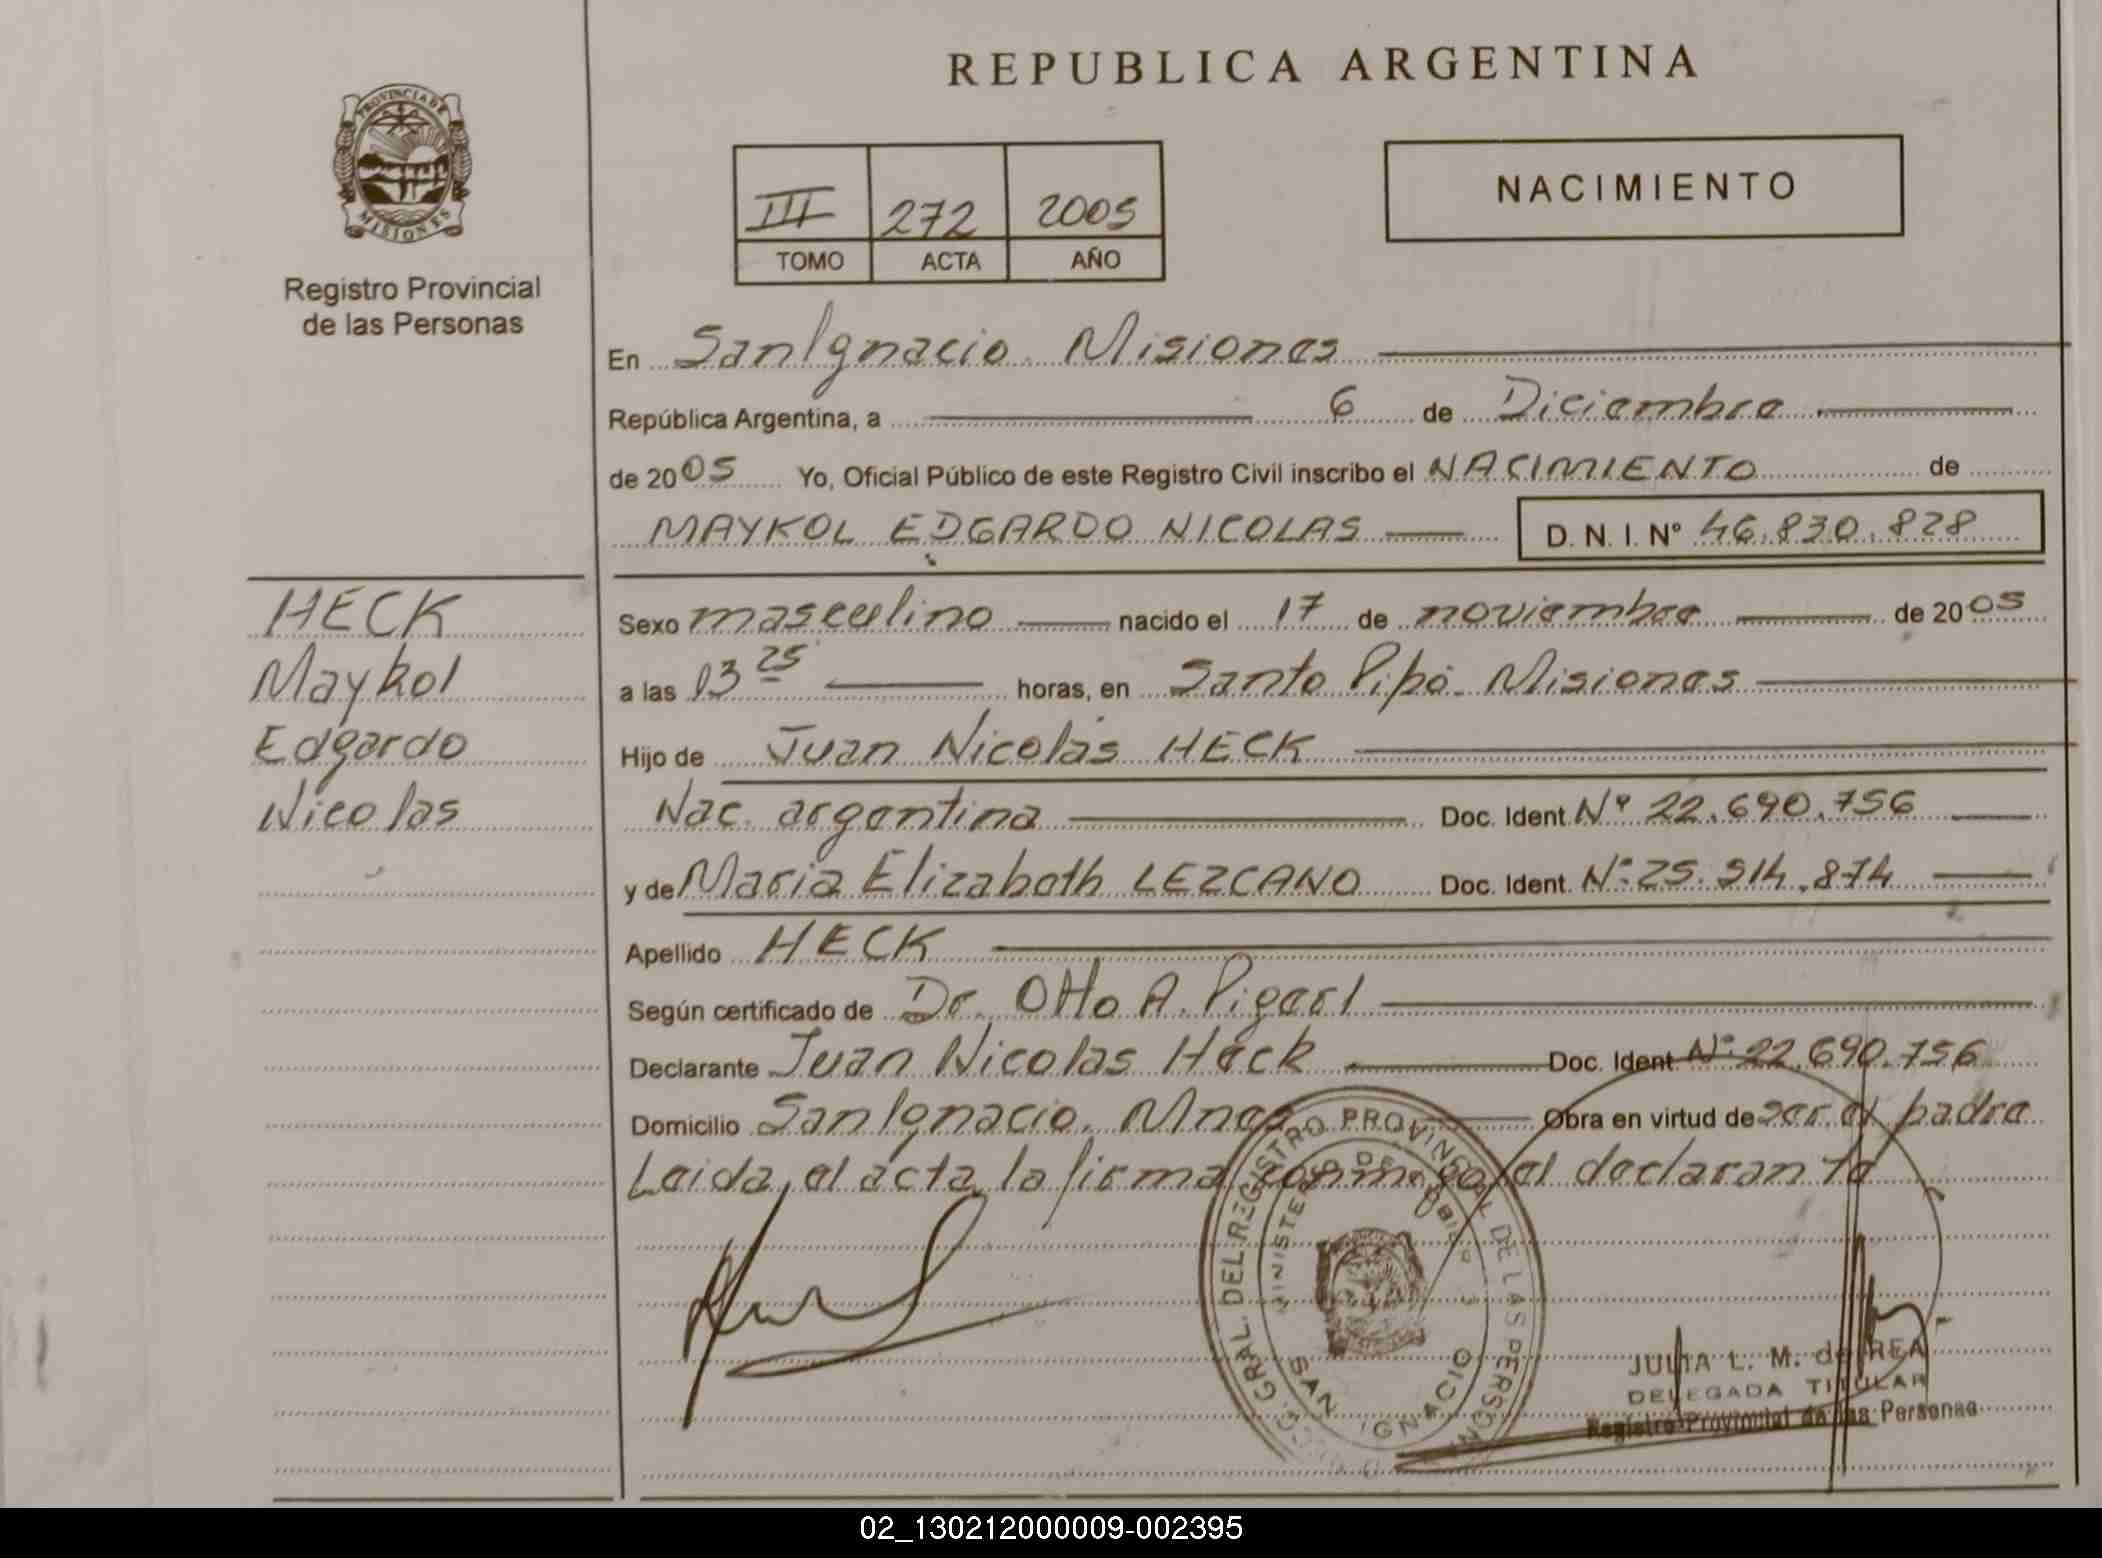 REPUBLICA ARGENTINA
PROVINCIA DE
MISIONES
Registro Provincial
de las Personas
III 272 2005
TOMO ACTA AÑO
NACIMIENTO
En San Ignacio. Misiones
República Argentina, a 6 de Diciembre
de 2005 Yo, Oficial Público de este Registro Civil inscribo el NACIMIENTO de
MAYKOL EDGARDO NICOLAS D. N. I. Nº 46.830.828
HECK
Maykol
Edgardo
Nicolas
Sexo masculino nacido el 17 de noviembre de 2005
a las 13 25 horas, en Santo Pipó. Misiones
Hijo de Juan Nicolás HECK
Nac. argentina Doc. Ident. Nº 22.690.756
y de Maria Elizabeth LEZCANO Doc. Ident. Nº 25.514.874
Apellido HECK
Según certificado de Dr. Otto A.
Declarante Juan Nicolas Heck Doc. Ident. Nº 22.690.756
Domicilio San Ignacio. Mnes Obra en virtud de ser el padre
Leida el acta la firma conmigo el declarante
GRAL. DEL REGISTRO PROVINCIAL DE LAS PERSONAS
MINISTERIO DE
SAN IGNACIO
JULIA L. M. de REA
DELEGADA TITULAR
Registro Provincial de las Personas
02_130212000009-002395